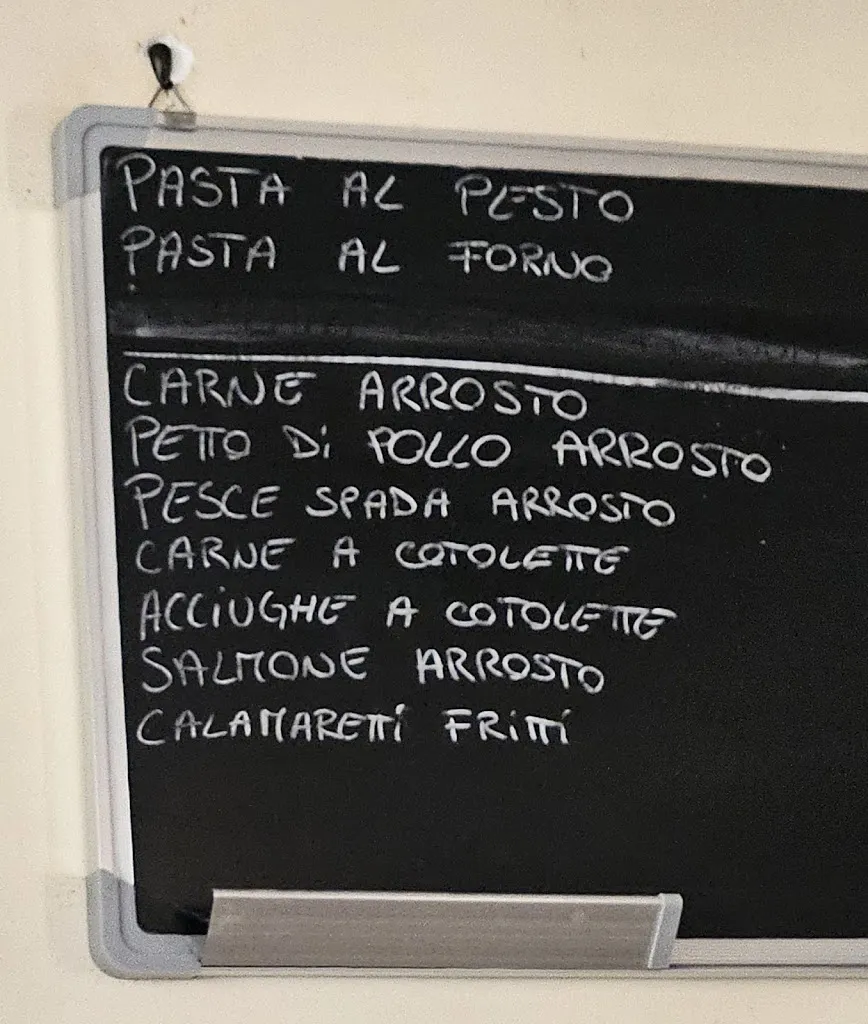 PASTA AL PESTO
PASTA AL FORNO
CARNE ARROSTO
PETTO Di POLLO ARROSTO
PESCE SPADA ARROSTO
CARNE A COTOLETTE
ACCiUGHE A COTOLETTE
SALMONE ARROSTO
CALAMARETTi FRiTTi